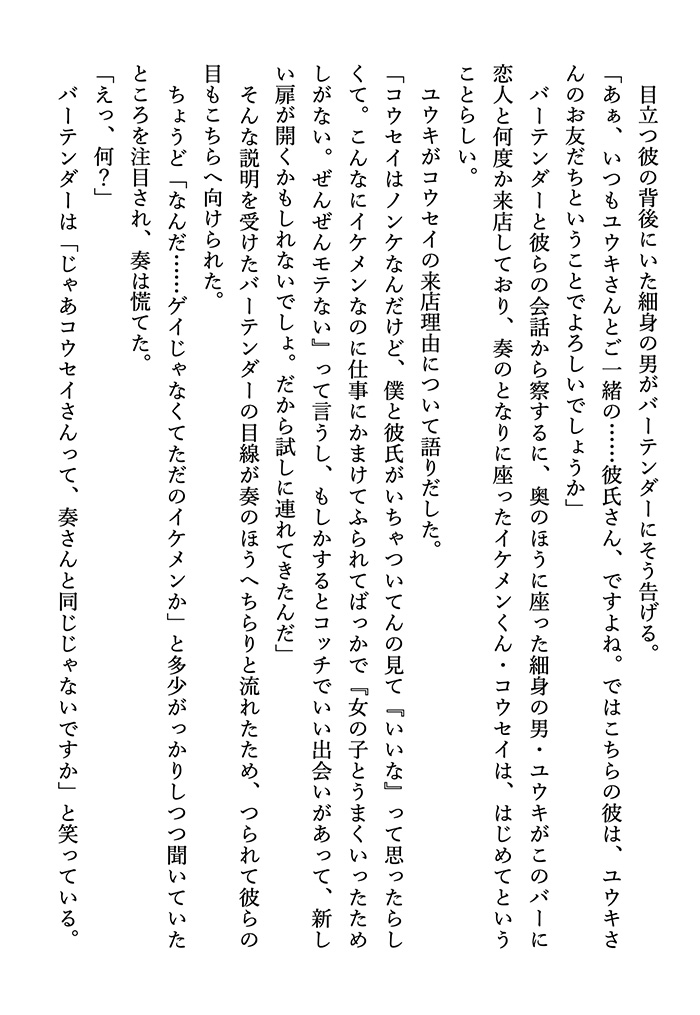 目立つ彼の背後にいた細身の男がバーテンダーにそう告げる。
「あぁ、いつもユウキさんとご一緒の……彼氏さん、ですよね。ではこちらの彼は、ユウキさ
んのお友だちということでよろしいでしょうか」
バーテンダーと彼らの会話から察するに、奥のほうに座った細身の男・ユウキがこのバーに
恋人と何度か来店しており、奏のとなりに座ったイケメンくん・コウセイは、はじめてという
ことらしい。
ユウキがコウセイの来店理由について語りだした。
「コウセイはノンケなんだけど、僕と彼氏がいちゃついてんの見て『いいな』って思ったらし
くて。こんなにイケメンなのに仕事にかまけてふられてばっかで『女の子とうまくいったため
しがない。ぜんぜんモテない』って言うし、もしかするとコッチでいい出会いがあって、新し
い扉が開くかもしれないでしょ。だから試しに連れてきたんだ」
そんな説明を受けたバーテンダーの目線が奏のほうへちらりと流れたため、つられて彼らの
目もこちらへ向けられた。
ちょうど「なんだ……ゲイじゃなくてただのイケメンか」と多少がっかりしつつ聞いていた
ところを注目され、奏は慌てた。
「えっ、何？」
バーテンダーは「じゃあコウセイさんって、奏さんと同じじゃないですか」と笑っている。